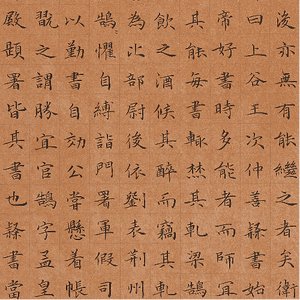 亦有者矣衛
曰上谷王次仲善隸書始
帝好書時多能者而師宜
其能每書輒焚其札梁鵠
飲之酒候其醉而竊其札
為北部尉後依劉表荊州
鵠懼自縛詣門署軍假司
以勤書自効公嘗懸着帳
翫之謂勝宜官鵠字孟皇
殿題署皆其書也隸書當